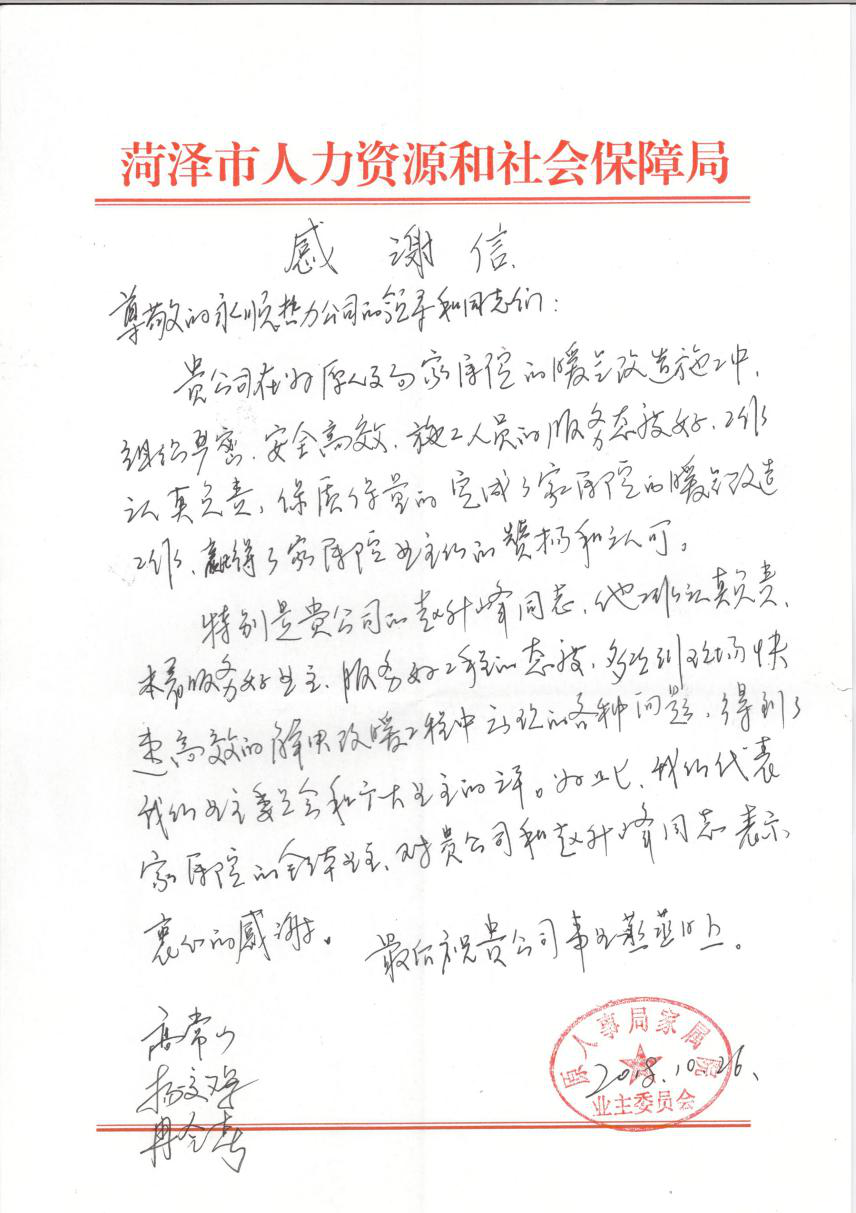 菏泽市人力资源和社会保障局
感谢信
尊敬的永顺热力公司的领导和同志们：
贵公司在为原人事局家属院的暖气改造施工中，
组织严密、安全高效，施工人员的服务态度好、工作
认真负责，保质保量的完成了家属院的暖气改造
工作、赢得了家属院业主们的赞扬和认可。
特别是贵公司的赵升峰同志，他工作认真负责、
本着服务好业主、服务好工程的态度，多次到现场快
速高效的解决改暖工程中出现的各种问题，得到了
我们业主委员会和广大业主的好评。为此，我们代表
家属院的全体业主、对贵公司和赵升峰同志表示
衷心的感谢。
最后祝贵公司事业蒸蒸日上。
原人事局家属院
业主委员会
2018.10.26.